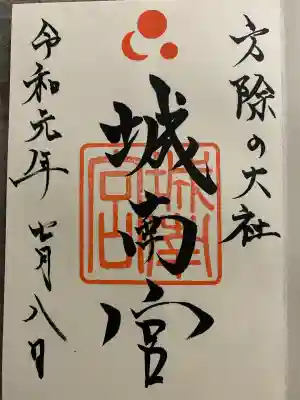 方除の大社
城南宮
令和元年七月八日